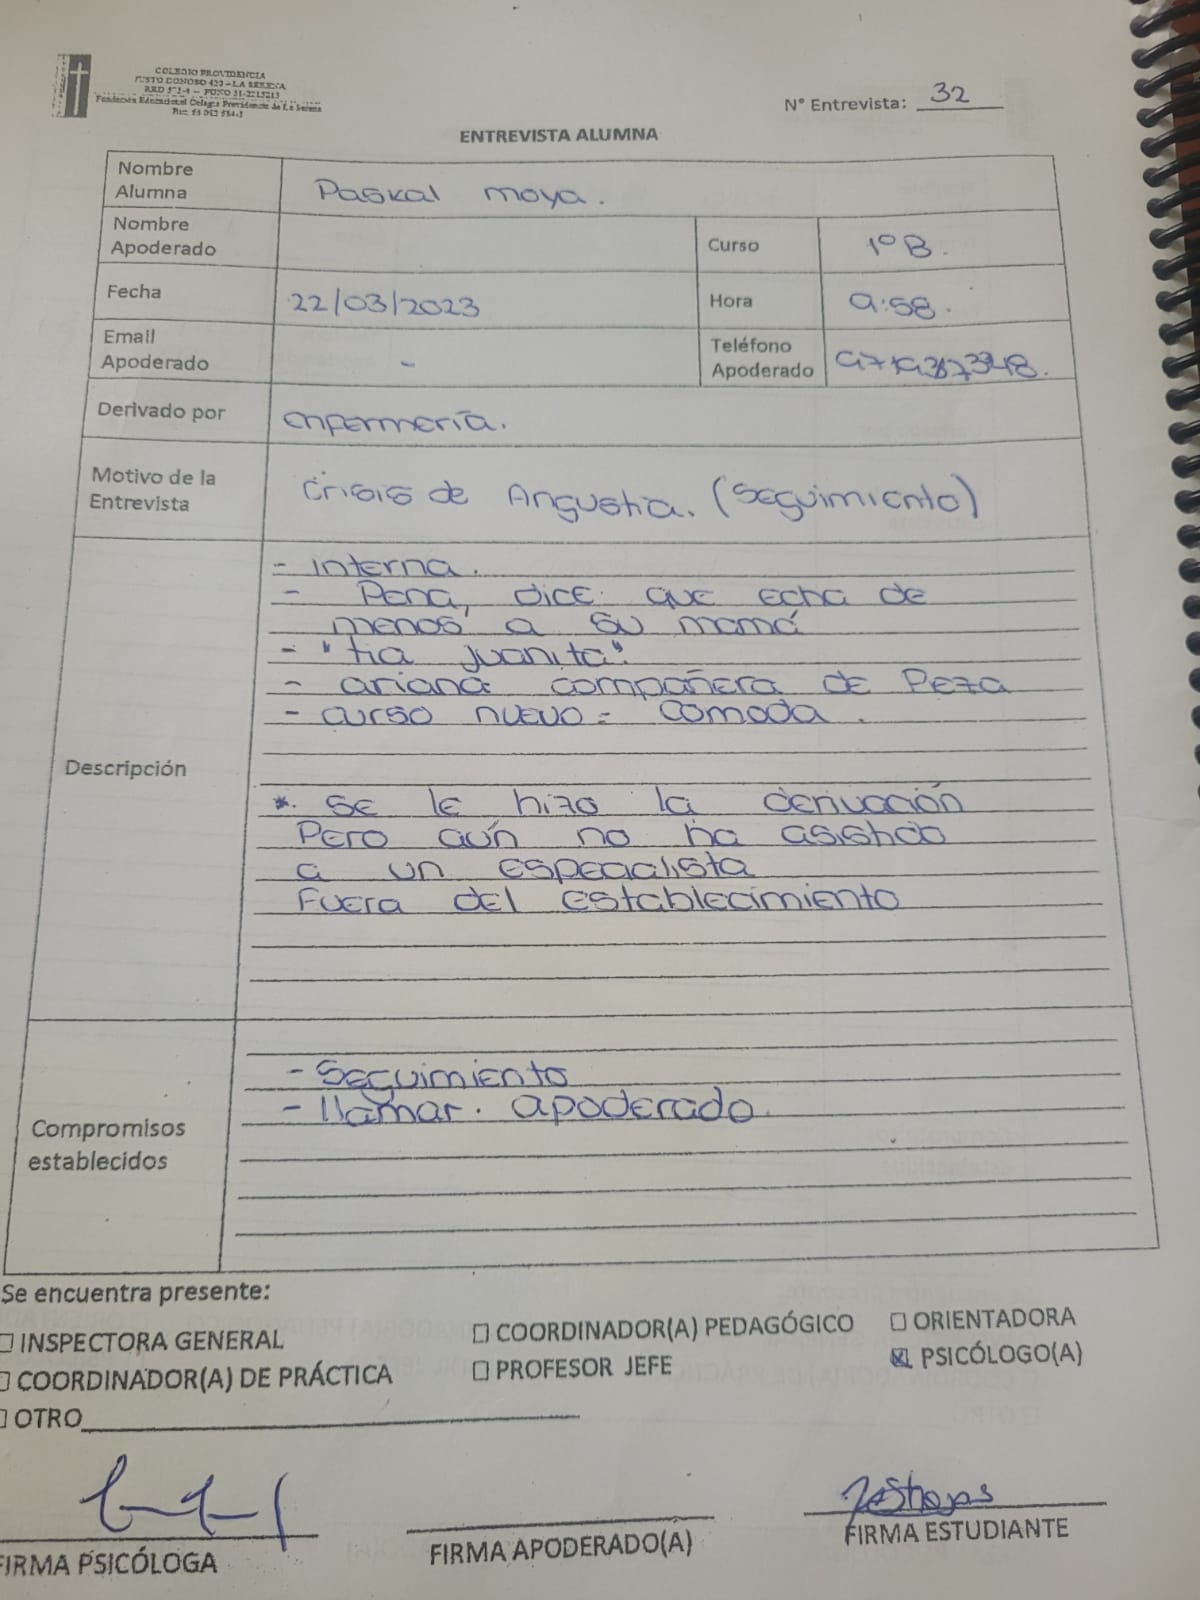 COLEGIO PROVIDENCIA
JUSTO DONOSO 420 - LA SERENA
Fundación Educacional Colegio Providencia de La Serena
N° Entrevista: 32
ENTREVISTA ALUMNA
Nombre Alumna Paskal moya.
Nombre Apoderado
Curso 1° B.
Fecha 22/03/2023
Hora 9:58.
Email Apoderado -
Teléfono Apoderado
Derivado por enfermería.
Motivo de la Entrevista Crisis de Angustia. (seguimiento)
Descripción
- interna.
- Pena, dice que echa de
menos a su mamá
- "tia juanita".
- ariana: compañera de Peza
- curso nuevo = comoda.
*. se le hizo la derivación
Pero aún no ha asistido
a un especialista
Fuera del establecimiento
Compromisos establecidos
- Seguimiento
- llamar. apoderado.
Se encuentra presente:
INSPECTORA GENERAL
COORDINADOR(A) PEDAGÓGICO
ORIENTADORA
COORDINADOR(A) DE PRÁCTICA
PROFESOR JEFE
PSICÓLOGO(A)
OTRO
FIRMA PSICÓLOGA
FIRMA APODERADO(A)
FIRMA ESTUDIANTE